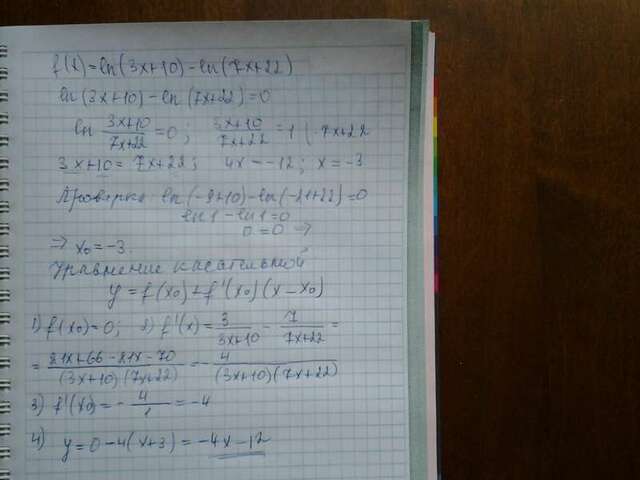 f(x)=ln(3x+10)-ln(7x+22)
ln(3x+10)-ln(7x+22)=0
ln (3x+10)/(7x+22)=0; (3x+10)/(7x+22)=1 | ·7x+22
3x+10=7x+22; 4x=-12; x=-3
Проверка ln(-9+10)-ln(-21+22)=0
ln1-ln1=0
0=0 ⇒
⇒ x₀=-3.
Уравнение касательной
y=f(x₀)+f'(x₀)(x-x₀)
1) f(x₀)=0; 2) f'(x)=3/(3x+10)-7/(7x+22)=
=(21x+66-21x-70)/((3x+10)(7x+22))=-4/((3x+10)(7x+22))
3) f'(x₀)=-4/1=-4
4) y=0-4(x+3)=-4x-12